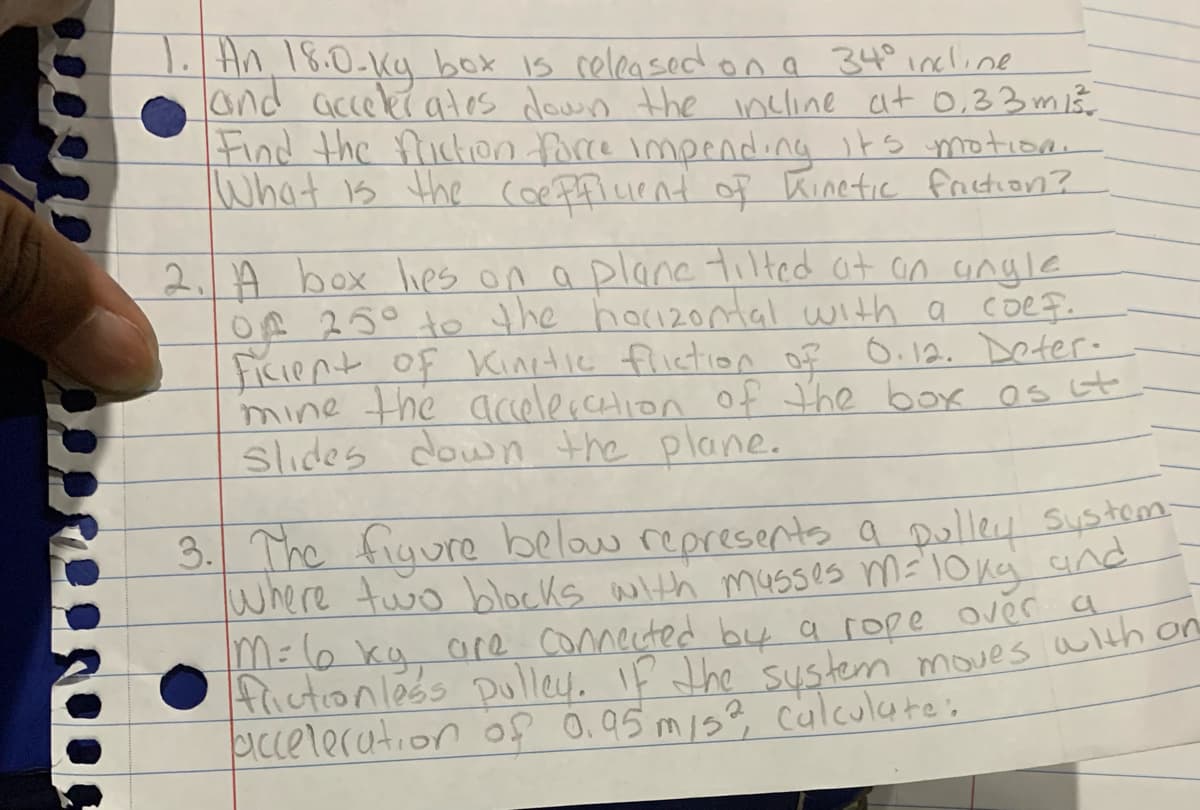 1. An 18.0-kg box is released on a 34° incline
and accelerates down the incline at 0.33 m/s².
Find the friction force impending its motion.
What is the coefficient of kinetic friction?
2. A box lies on a plane tilted at an angle
of 25° to the horizontal with a coef-
ficient of kinetic friction of 0.12. Deter-
mine the acceleration of the box as it
slides down the plane.
3. The figure below represents a pulley system
where two blocks with masses m=10kg and
m=6 kg, are connected by a rope over a
frictionless pulley. If the system moves with an
acceleration of 0.95 m/s², calculate: